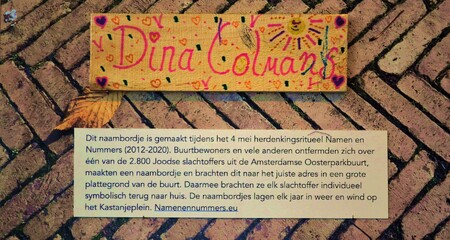 Dina Colmans
Dit naambordje is gemaakt tijdens het 4 mei herdenkingsritueel Namen en
Nummers (2012-2020). Buurtbewoners en vele anderen ontfermden zich over
één van de 2.800 Joodse slachtoffers uit de Amsterdamse Oosterparkbuurt,
maakten een naambordje en brachten dit naar het juiste adres in een grote
plattegrond van de buurt. Daarmee brachten ze elk slachtoffer individueel
symbolisch terug naar huis. De naambordjes lagen elk jaar in weer en wind op
het Kastanjeplein. Namenennummers.eu